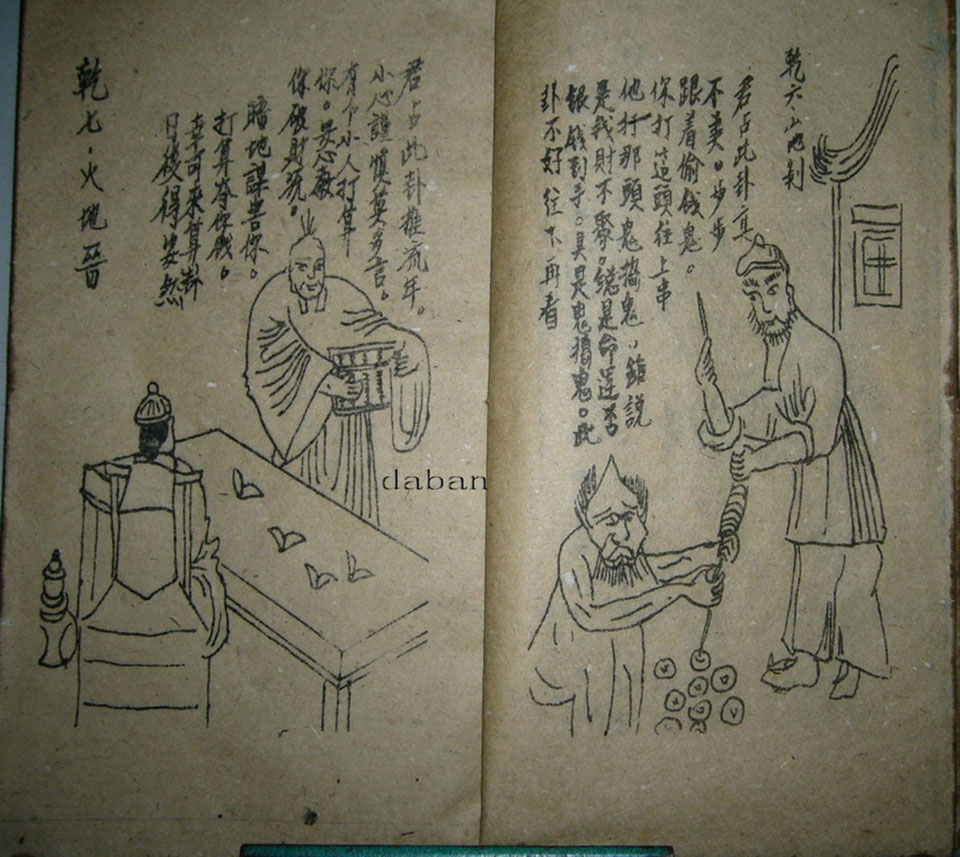 乾六山地剝
君占此卦真
不卖。步步
跟着偷钱鬼。
你打這頭往上串
他打那頭鬼搗鬼。錯說
是我財不聚。總是命運否
銀钱到手。具是鬼搗鬼。此
卦不好往下再看
君占此卦推流年。
小心謹慎莫多言。
有个小人打算
你。安心教
你破財源。
暗地謀害你。
打算吞你
幸可來算卦
日後得安然
乾七·火地晉
daban